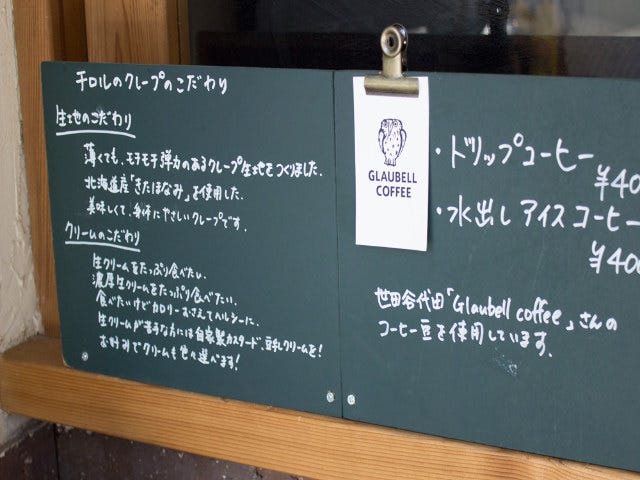 チロルのクレープのこだわり
生地のこだわり
薄くても、モチモチ弾力のあるクレープ生地をつくりました.
北海道産「きたほなみ」を使用した.
美味しくて、身体にやさしいクレープです.
クリームのこだわり
生クリームをたっぷり食べたい.
濃厚生クリームをたっぷり食べたい.
食べたいけどカロリーおさえてヘルシーに.
生クリームが苦手な方には自家製カスタード、豆乳クリームを!
お好みでクリームも色々選べます!
GLAUBELL
COFFEE
・ドリップコーヒー
¥40
・水出しアイスコーヒー
¥400
世田谷代田「Glaubell coffee」さんの
コーヒー豆を使用しています.